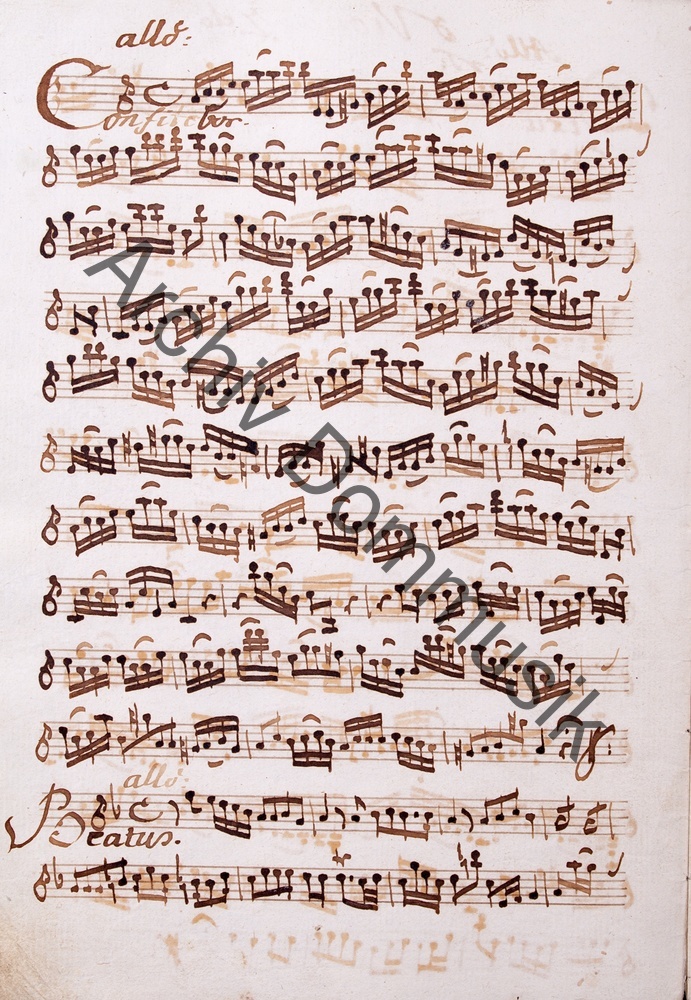 allo:
Confitebor.
allo:
Beatus.
Archiv Dommusik